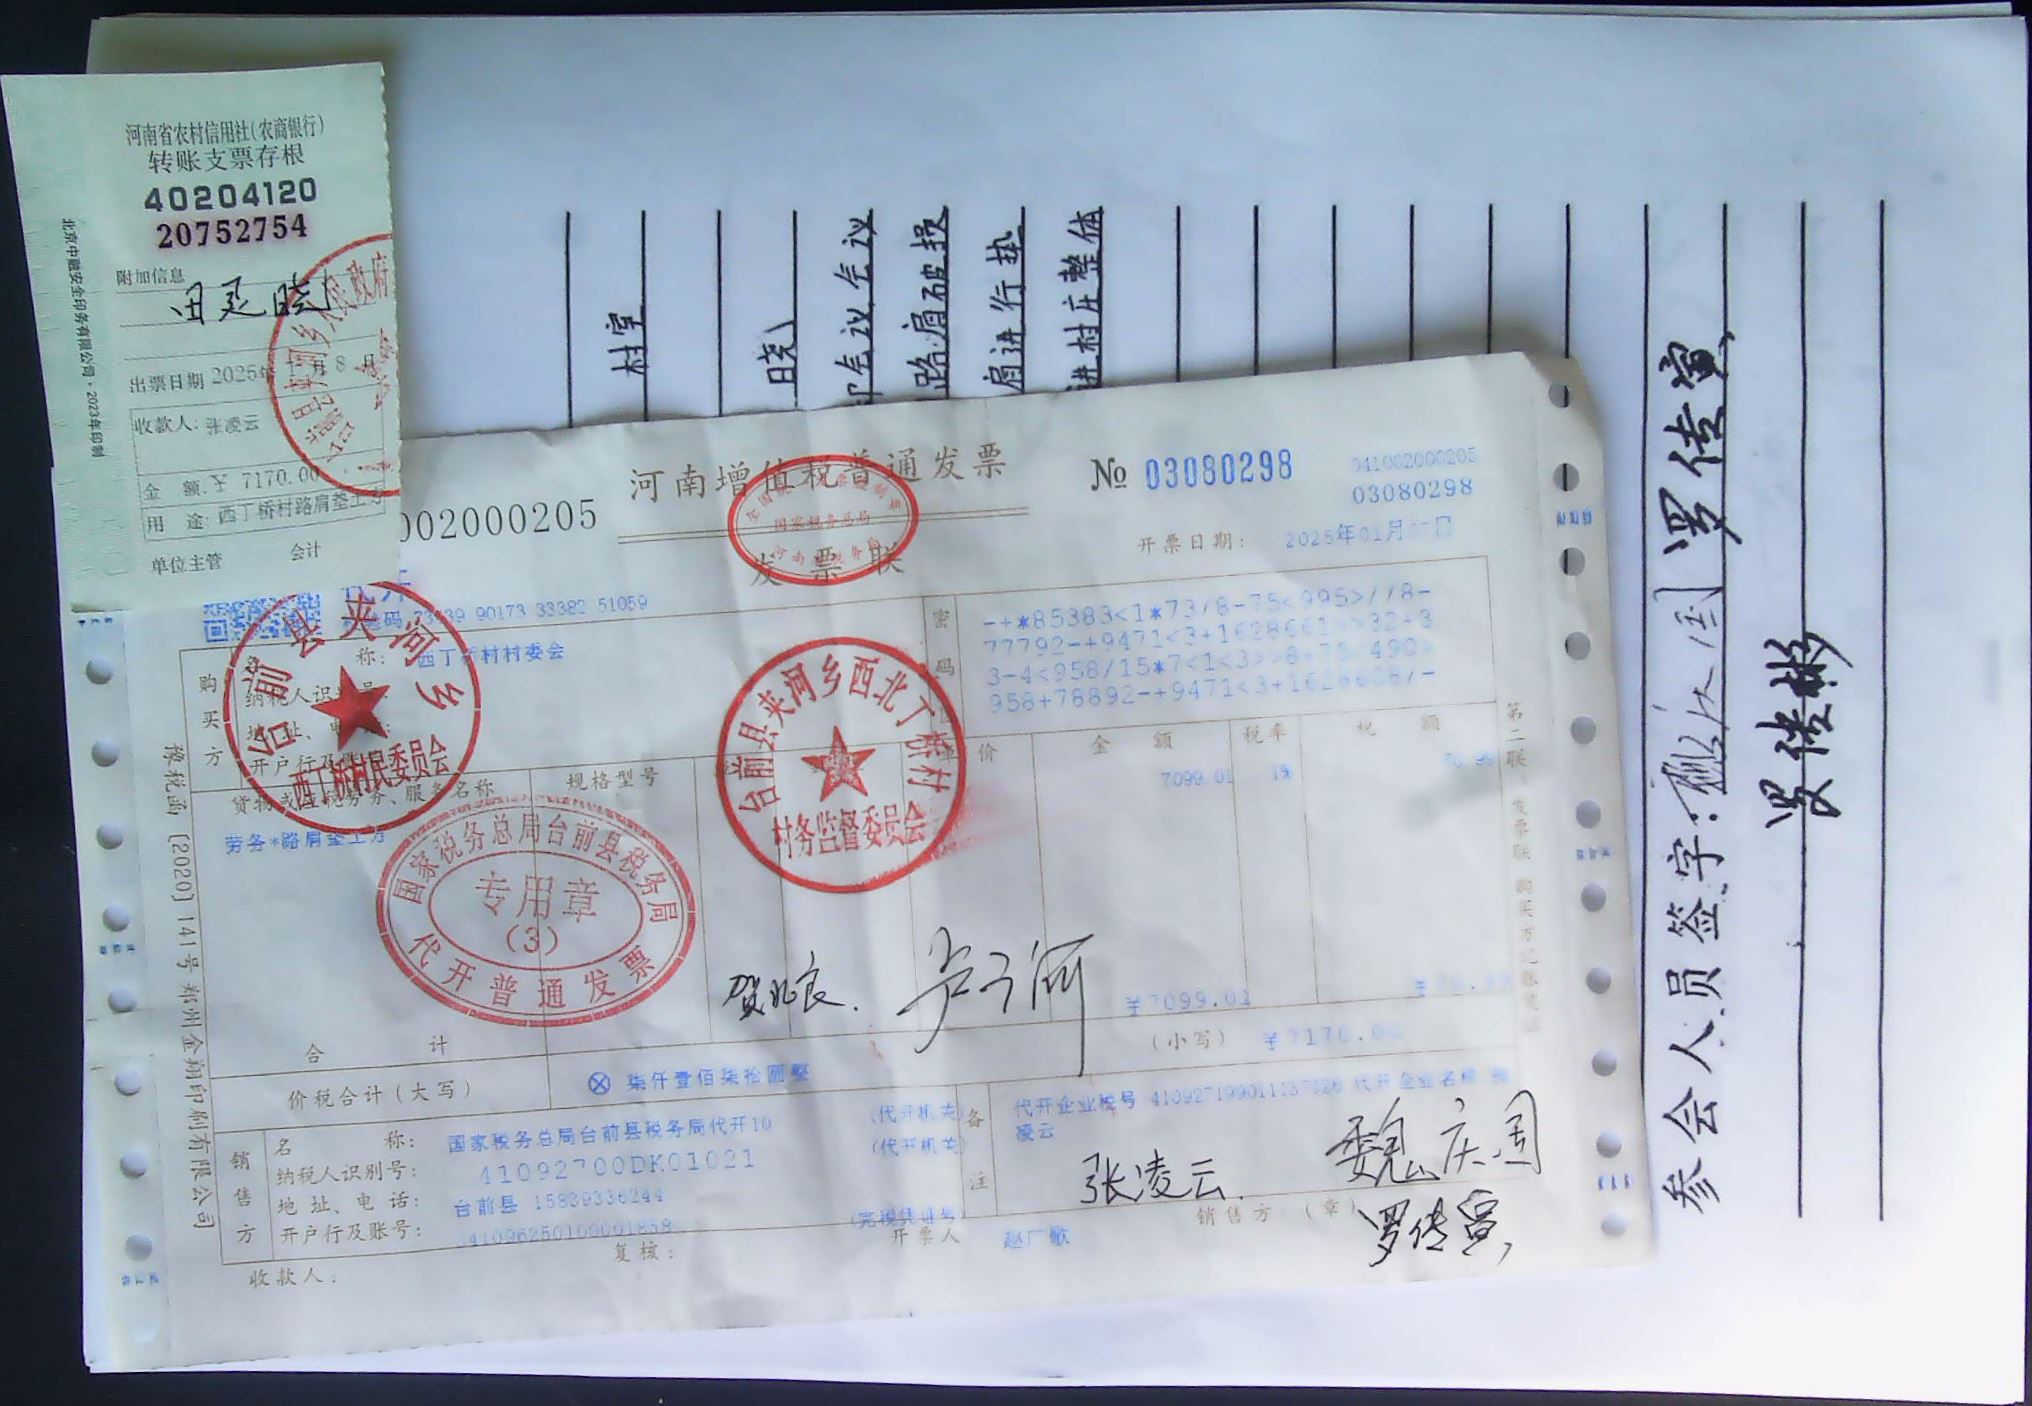 河南省农村信用社(农商银行)
转账支票存根
40204120
20752754
附加信息
田延晓
出票日期 2025年 1月 8日
收款人: 张凌云
金 额: ¥ 7170.00
用 途: 西丁桥村路肩垫土方
单位主管 会计
北京中融安全印务有限公司·2023年印制
村室
晓
会议会议
路肩破损
肩进行垫
进村庄整体
002000205
河南增值税普通发票
发票联
国家税务总局
№ 03080298
041002000205
03080298
开票日期: 2025年01月
代开
73439 90173 33382 51059
购买方
名 称: 西丁桥村村委会
纳税人识别号
地址、电
开户行及账
密码
-+*85383<1*73/8-75<995>//8-
77792-+9471<3+1628661>>32+3
3-4<958/15*7<1<3>>8+75<490>
958+78892-+9471<3+1628608/-
货物或应税劳务、服务名称
规格型号
单价
金 额
税率
税 额
劳务*路肩垫土方
7099.01
1%
70.99
台前县夹河乡
西丁桥村民委员会
台前县夹河乡西北丁桥村
村务监督委员会
国家税务总局台前县税务局
专用章
(3)
代开普通发票
贺兆良.
合 计
¥7099.01
¥70.99
价税合计(大写)
柒仟壹佰柒拾圆整
(小写) ¥7170.00
销售方
名 称: 国家税务总局台前县税务局代开10
(代开机关)
纳税人识别号: 41092700DK01021
(代开机关)
地址、电话: 台前县 15839336244
开户行及账号: 41096250100001858
(完税凭证号)
备注
代开企业税号
代开企业名称 张
凌云
张凌云.
魏庆国
罗传寅,
收款人:
复核:
开票人
赵广敬
销售方 (章)
豫税函〔2020〕141号郑州金翔印刷有限公司
第二联:发票联 购买方记账凭证
参会人员签字:
罗传寅、